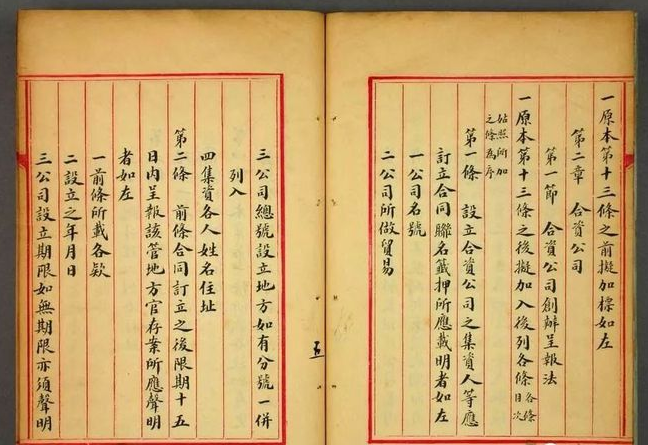 一原本第十三條之前擬加標如左
第二章　合資公司
第一節　合資公司創辦呈報法
一原本第十三條之後擬加入後列各條各條目次
姑照所加之條為序
第一條　設立合資公司之集資人等應
訂立合同聯名籤押所應載明者如左
一公司名號
二公司所做貿易
五
三公司總號設立地方如有分號一併
列入
四集資各人姓名住址
第二條　前條合同訂立之後限期十五
日內呈報該管地方官存案所應聲明
者如左
一前條所載各欵
二設立之年月日
三公司設立期限如無期限亦須聲明